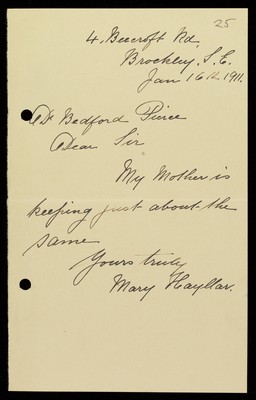 25
4, Beecroft Rd,
Brockley. S. E.
Jan 16th 1911.
Dr Bedford Pierce
Dear Sir
My Mother is
keeping just about the
same
Yours truly
Mary Hayllar.